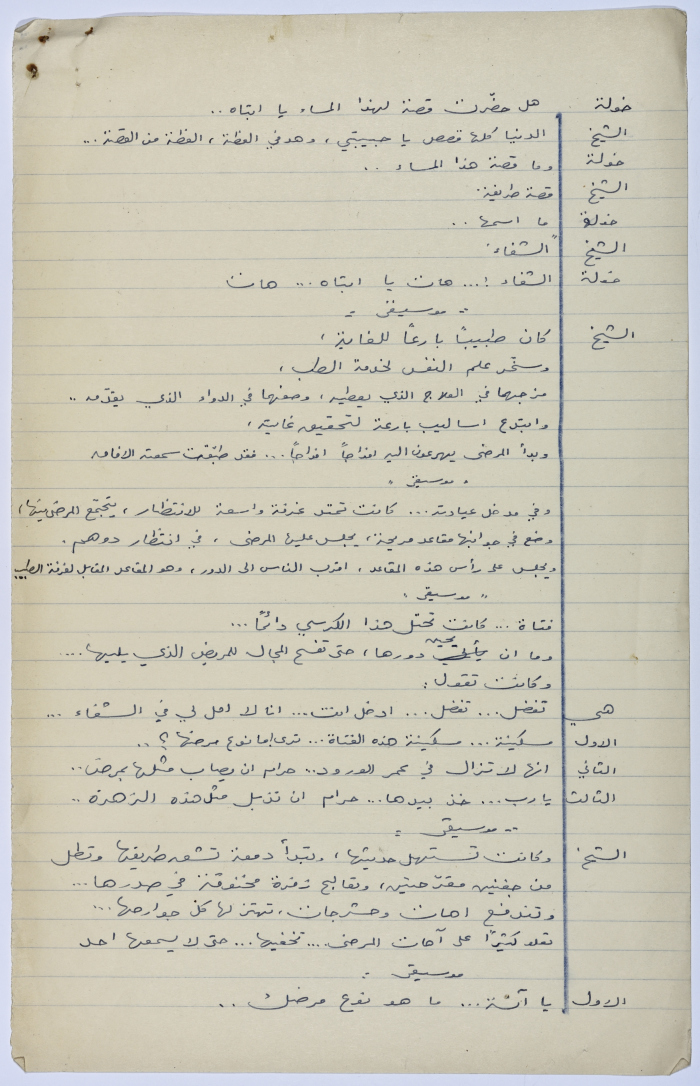 خولة هل حضّرت قصة لهذا المساء يا ابتاه ..
الشيخ الدنيا كلها قصص يا حبيبتي ، وهدفي العظة ، العظة من القصة ...
خولة وما قصة هذا المساء ..
الشيخ قصة طريفة .
خولة ما اسمها ..
الشيخ "الشفاء"
خولة الشفاء !... هات يا ابتاه ... هات
" موسيقى "
الشيخ كان طبيباً بارعاً للغاية ،
وسخّر علم النفس لخدمة الطب ،
مزجهما في العلاج الذي يعطيه ، وصفهما في الدواء الذي يقدّمه ..
وابتدع اساليب بارعة لتحقيق غايته ،
وبدأ المرضى يهرعون اليه افواجاً افواجاً ... فقد طبّقت سمعته الافاق
" موسيقى "
وفي مدخل عيادته ... كانت تمتد غرفة واسعة للانتظار ، يتجمّع المرضى فيها ،
وضع في جوانبها مقاعد مريحة ، يجلس عليها المرضى ، في انتظار دورهم .
ويجلس على رأس هذه المقاعد ، اقرب الناس الى الدور ، وهو المقاعد المقابل لغرفة الطبيب
" موسيقى "
فتاة ... كانت تحتل هذا الكرسي دائماً ...
وما ان يحين دورها ، حتى تفسح المجال للمريض الذي يليها ....
وكانت تقول :
هي تفضل ... تفضل ... ادخل انت ... انا لا امل لي في الشفاء ...
الاول مسكينة ... مسكينة هذه الفتاة ... ترى ما نوع مرضها ؟ ..
الثاني انها لا تزال في عمر الورود ... حرام ان يصاب مثلها بمرض ..
الثالث يا رب ... خذ بيدها ... حرام ان تذبل مثل هذه الزهرة ..
" موسيقى "
الشيخ وكانت تستهل حديثها ، وتبدأ دمعة تشعر طريقها وتطل
من جفنين مقرّحين ، وتعالج زفرة مخنوقة في صدرها ...
وتندفع اهات وحشرجات ، تهتز لها كل جوارحها ...
تعلو كثيراً على آهات المرضى .... تخفيها ... حتى لا يسمعها احد
موسيقى "
الاول يا آنسة ... ما هو نوع مرضك ..